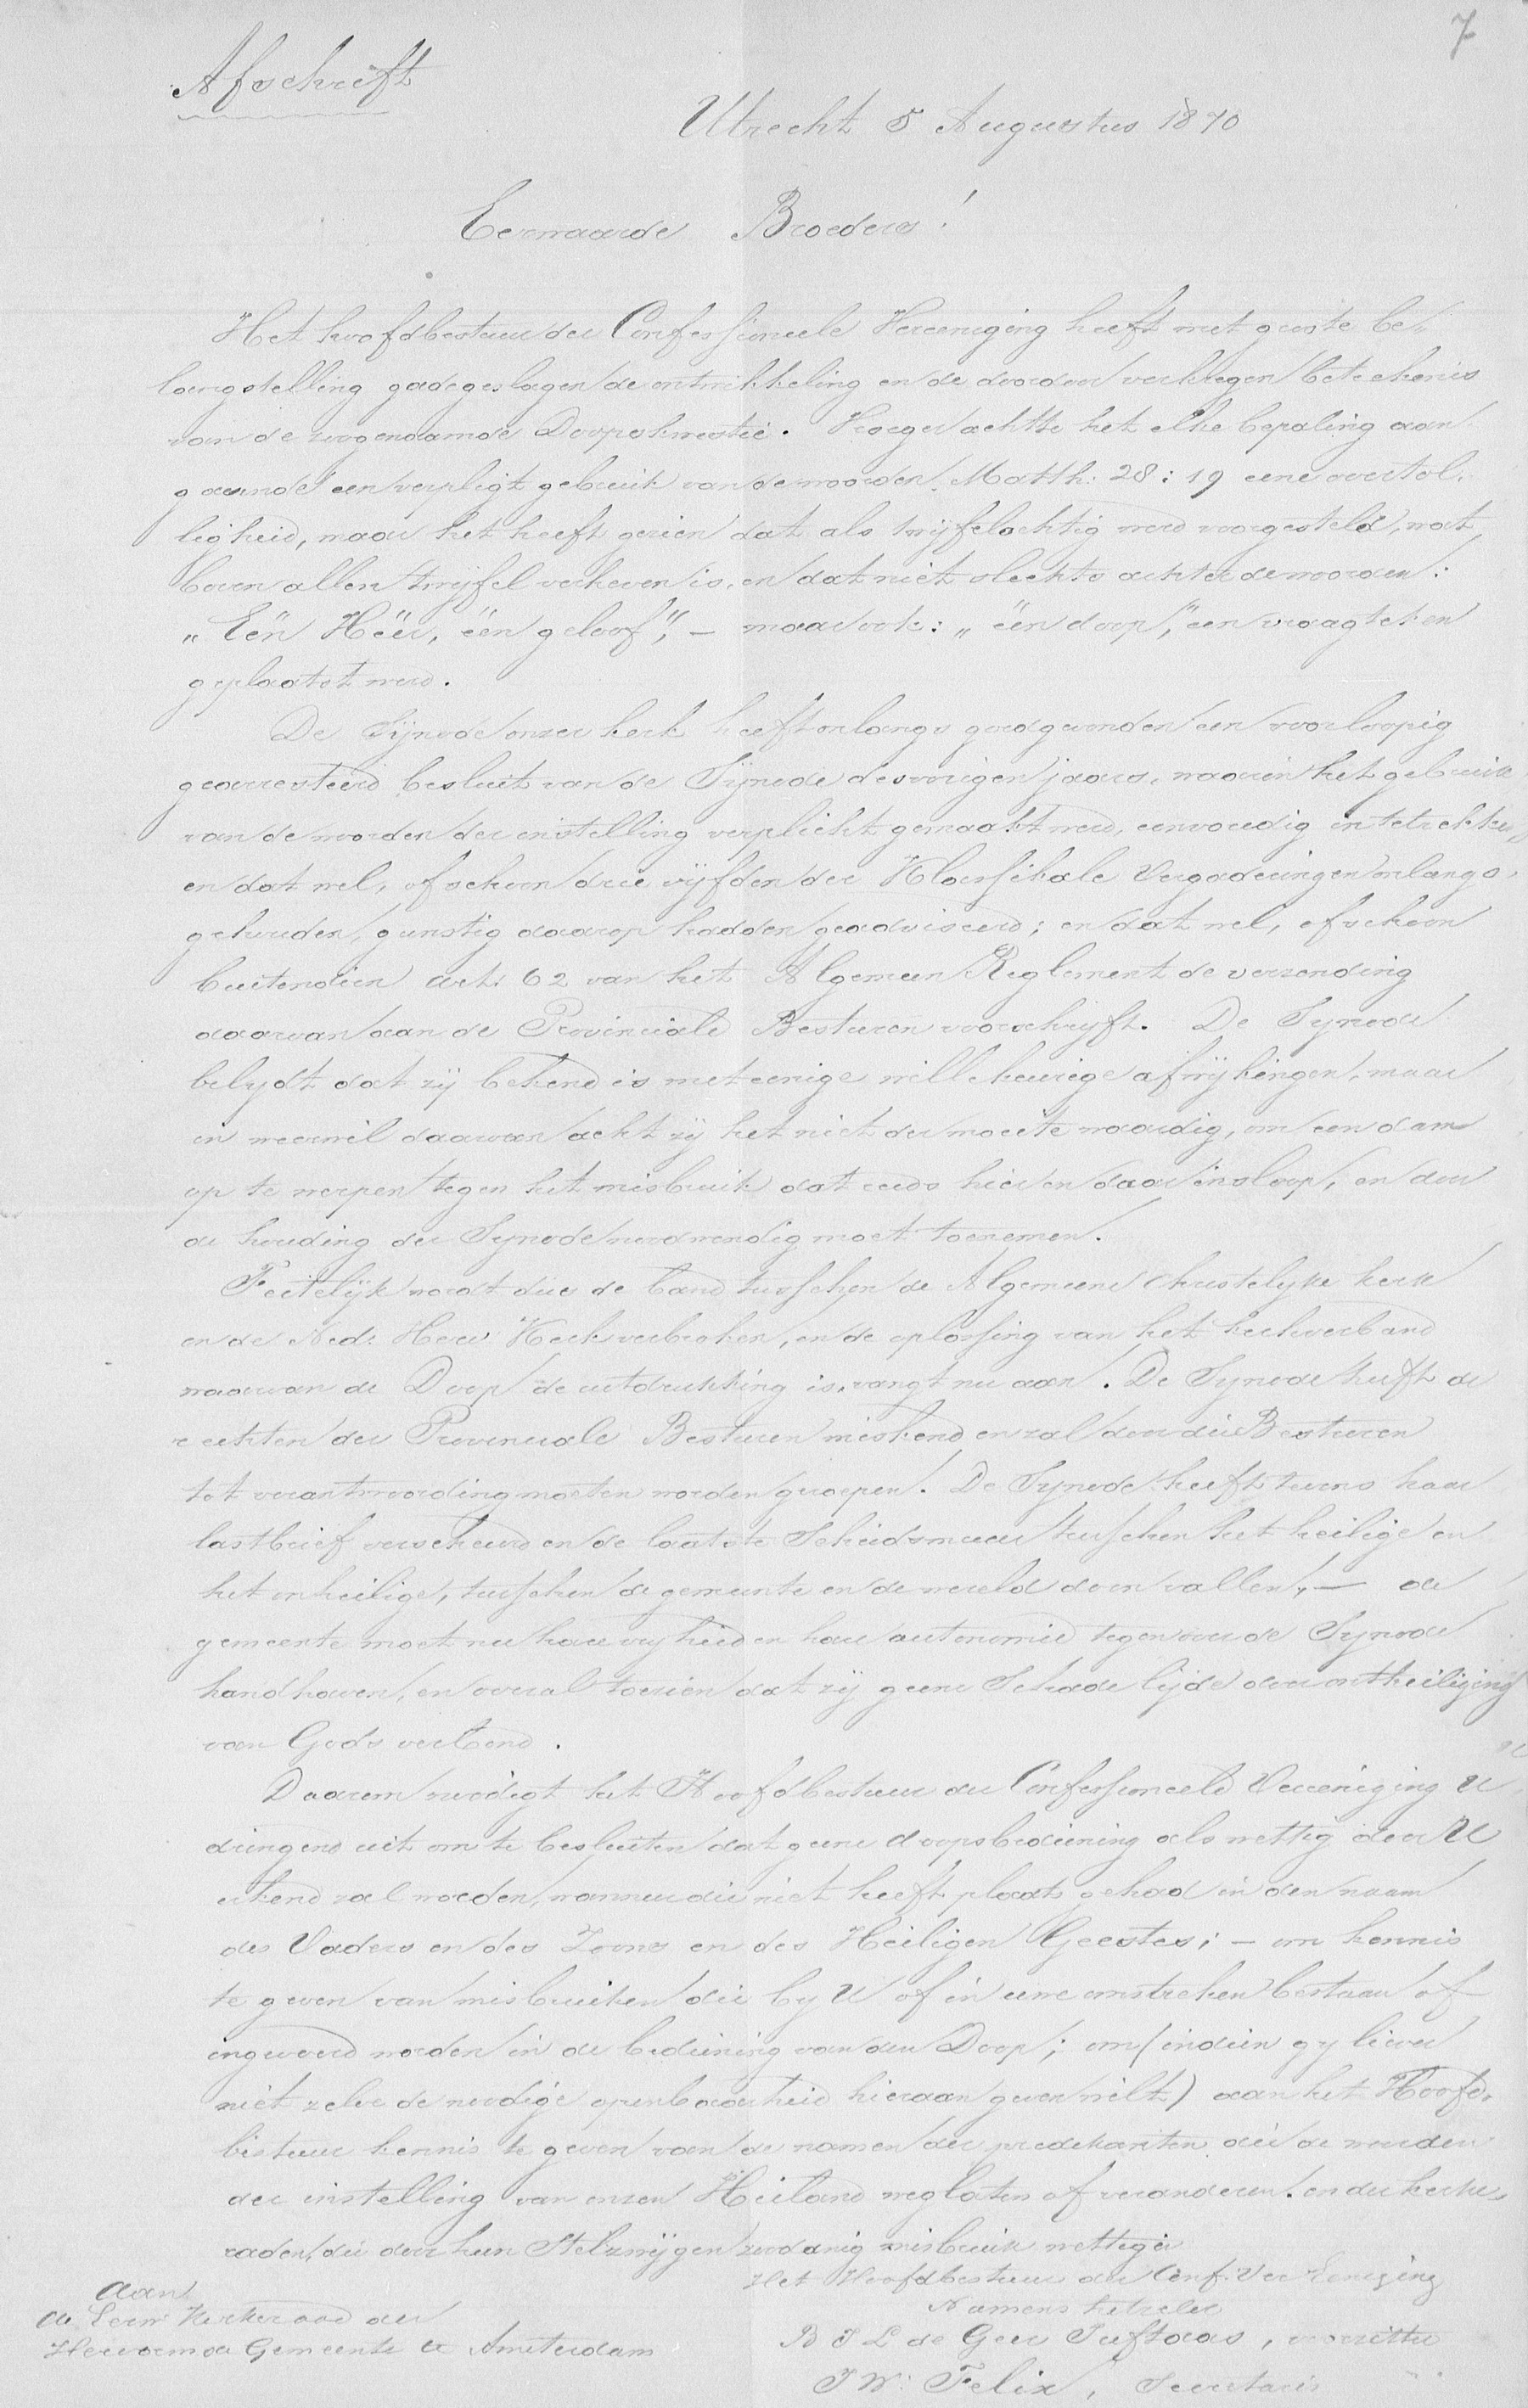 7
Afschrift
Utrecht 5 Augustus 1870
Eerwaarde Broeders!
Het hoofdbestuur der Confessioneele Vereeniging heeft met groote be-
langstelling gadegeslagen de ontwikkeling en de daardoor verkregen beteekenis
van de zoogenaamde Doopskwestie. Vroeger achtte het elke bepaling aan
gaande een verpligt gebruik van de woorden Matth: 28:19 eene overtol-
ligheid, maar het heeft gezien dat als twijfelachtig werd voorgesteld, wat
boven allen twijfel verheven is, en dat niet slechts achter de woorden:
„Eén Heer, één geloof", — maar ook: „één doop", een vraagteeken
geplaatst werd.
De Synode onzer kerk heeft onlangs goedgevonden een voorloopig
gearresteerd besluit van de Synode des vorigen jaars, waarin het gebruik
van de woorden der instelling verplicht gemaakt werd, eenvoudig in te trekken,
en dat wel, ofschoon drie vijfden der Klassikale Vergaderingen onlangs
gehouden, gunstig daarop hadden geadviseerd; en dat wel, ofschoon
buitendien Art: 62 van het Algemeen Reglement de verzending
daarvan aan de Provinciale Besturen voorschrijft. De Synode
belydt dat zij bekend is met eenige willekeurige afwijkingen, maar
in weerwil daarvan acht zij het niet der moeite waardig, om een dam
op te werpen tegen het misbruik dat reeds hier en daar insloop, en door
de houding der Synode noodwendig moet toenemen.
Feitelijk wordt dus de band tusschen de Algemeene Christelyke kerk
en de Ned: Herv: Kerk verbroken, en de oplossing van het kerkverband
waarvan de Doop de uitdrukking is, vangt nu aan. De Synode heeft de
rechten der Provinciale Besturen miskend en zal door die Besturen
tot verantwoording moeten worden geroepen. De Synode heeft tevens haar
lastbrief verscheurd en de laatste Scheidsmuur tusschen het heilige en
het onheilige, tusschen de gemeente en de wereld doen vallen; — de
gemeente moet nu hare vryheid en hare autonomie tegenover de Synode
handhaven, en overal toezien dat zij geene Schade lijde door ontheiliging
van Gods verbond.
Daarom noodigt het Hoofdbestuur der Confessioneele Vereeniging U
dringend uit om te besluiten dat geene doopsbediening als wettig door U
erkend zal worden, wanneer die niet heeft plaats gehad in den naam
des Vaders en des Zoons en des Heiligen Geestes; — om kennis
te geven van misbruiken die by U of in uwe omstreken bestaan of
ingevoerd worden in de bediening van den Doop; om (indien gy liever
niet zelve de noodige openbaarheid hieraan geven wilt) aan het Hoofd-
bestuur kennis te geven van de namen der predikanten die de woorden
der instelling van onzen Heiland weglaten of veranderen, en der kerke-
raden, die door hun Stelzwijgen zoodanig misbruik wettigen
Het Hoofdbestuur der Conf. Ver Eeniging
Namens hetzelve
B J L de Geer Jutfaas, voorzitter
J W: Felix, Secretaris
Aan
de Eerw Kerkeraad der
Hervormde Gemeente te Amsterdam